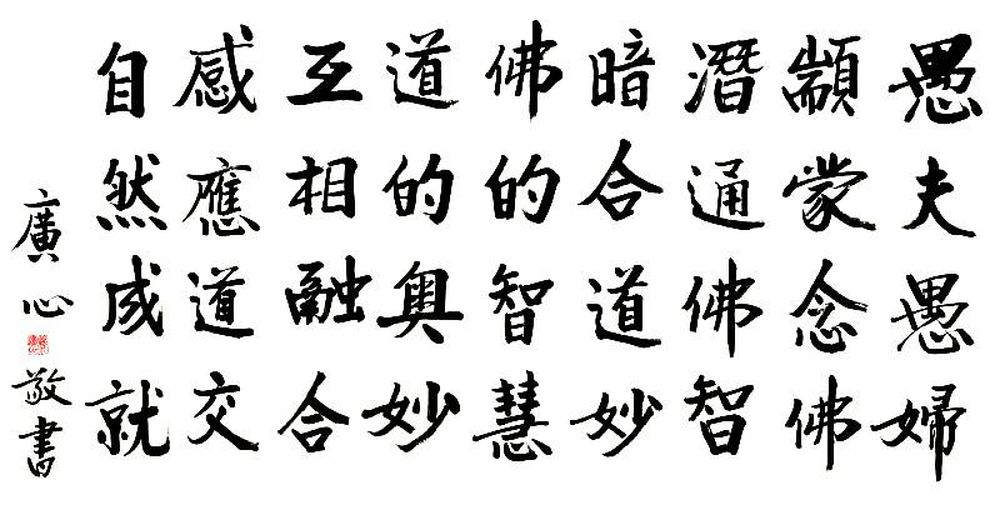 愚夫愚婦
顓蒙念佛
潛通佛智
暗合道妙
佛的智慧
道的奧妙
互相融合
感應道交
自然成就
廣心敬書